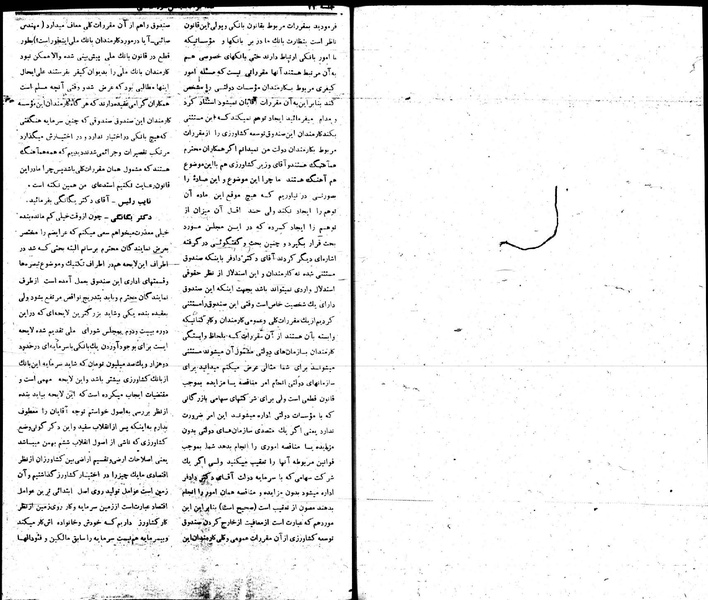 جلسه ۲۳
فرمودید بمقررات مربوط بقانون بانکی و پولی این قانون
ناظر است بنظارت بانک ما در بر بانکها و مؤسساتیکه
با امور بانکی ارتباط دارند حتی بانکهای خصوصی هم
به آن مرتبط هستند آنها مقرراتی نیست که مسئله امور
کیفری مربوط بکارمندان مؤسسات دولتی را مشخص
کند بنابراین به آن مقررات آقایان نمیشود استناد کرد
و مدام میفرمائید ایجاد توهم نمیکند که این مستثنی
بکند کارمندان این صندوق توسعه کشاورزی را از مقررات
مربوط بکارمندان دولت من نمیدانم اگر همکاران محترم
هم آهنگ هستند و آقای وزیر کشاورزی هم با این موضوع
هم آهنگ هستند ما چرا این موضوع و این ماده را
صورتی در نیاوریم که هیچ موقع این ماده آن
توهم را ایجاد نکند ولی حد اقل آن میزان از
توهم را ایجاد کرده که در این مجلس مورد
بحث قرار بگیرد و چنین بحث و گفتگوئی در گرفته
اشاره‌ای دیگر کردند آقای دکتر دادفر باینکه صندوق
مستثنی شده نه کارمندان و این استدلال از نظر حقوقی
استدلال واردی نمیتواند باشد بجهت اینکه این صندوق
دارای یک شخصیت خاص است وقتی این صندوق را مستثنی
کردیم از یک مقررات کلی و عمومی کارمندان و کارکنانیکه
وابسته بآن هستند از آن مقررات که بلحاظ وابستگی
کارمندان بسازمان‌های دولتی مشمول آن میشوند مستثنی
میشوند برای شما مثالی عرض میکنم میدانید برای
سازمانهای دولتی انجام امر مناقصه یا مزایده بموجب
قانون قطعی است ولی برای شرکتهای سهامی بازرگانی
که با مؤسسات دولتی اداره میشوند این امر ضرورت
ندارد یعنی اگر یک متصدی سازمان‌های دولتی بدون
مزایده یا مناقصه اموری را انجام بدهد شما بموجب
قوانین مربوطه آنها را تعقیب میکنید ولی اگر یک
شرکت سهامی که با سرمایه دولت آقای دکتر دادفر
اداره میشود بدون مزایده و مناقصه همان امور را انجام
بدهند مصون از تعقیب است (صحیح است) بنابراین این
مورد هم که عبارت است از معافیت از خارج کردن صندوق
توسعه کشاورزی از آن مقررات عمومی و کلی کارمندان این
صندوق را هم از آن مقررات کلی معاف میدارد (مهندس
صائبی - آیا در مورد کارمندان بانک ملی اینطور است؟) بطور
قطع در قانون بانک ملی پیش‌بینی شده والا ممکن نبود
کارمندان بانک ملی را بدیوان کیفر بفرستند علی‌ایحال
اینها مطالبی بود که عرض شد و وقتی آنچه مسلم است
همکاران گرامی عقیده دارند که هرگاه کارمندان این مؤسسه
کارمندان این صندوق صندوقی که چنین سرمایه هنگفتی
که هیچ بانکی در اختیار ندارد و در اختیارش میگذارد
مرتکب تقصیرات و جرائمی شدند بدیم که همه هم آهنگ
هستند که مشمول همان مقررات کلی باشد پس چرا ما در این
قانون رعایت نکنیم استدعای من همین نکته است.
نایب رئیس - آقای دکتر یگانگی بفرمائید.
دکتر یگانگی - چون از وقت خیلی کم مانده بنده
خیلی معذرت میخواهم سعی میکنم که عرایضم را مختصر
بعرض نمایندگان محترم برسانم البته بحثی که شد در
اطراف این لایحه هم در اطراف تکنیک و موضوع تبصره‌ها
و قسمتهای اداری این صندوق بعمل آمده است از طرف
نمایندگان محترم و باید بتدریج نواقص مرتفع بشود ولی
بعقیده بنده یکی و شاید بزرگترین لایحه‌ای که در این
دوره بیست و دوم بمجلس شورای ملی تقدیم شده لایحه
ایست برای بوجود آوردن یک بانکی با سرمایه‌ای در حدود
دو هزار و یکصد میلیون تومان که شاید سرمایه این بانک
از بانک کشاورزی بیشتر باشد و این لایحه مهمی است و
مقتضیات ایجاب میکرده است که این لایحه بیاید بنده
از نظر بررسی به اصول خواستم توجه آقایان را معطوف
بدارم به اینکه پس از انقلاب سفید و این دگرگونی وضع
کشاورزی که ناشی از اصول انقلاب ششم بهمن میباشد
یعنی اصلاحات ارضی و تقسیم اراضی بین کشاورزان از نظر
اقتصادی ما یک چیز را در اختیار کشاورز گذاشتیم و آن
زمین است عوامل تولید روی اصل ابتدائی ترین عوامل
اقتصاد عبارت است از زمین سرمایه و کار روی زمین از نظر
کار کشاورز داریم که خودش و خانواده اش کار میکند
و سرمایه هم نیست سرمایه را سابق مالکین و فئودالها